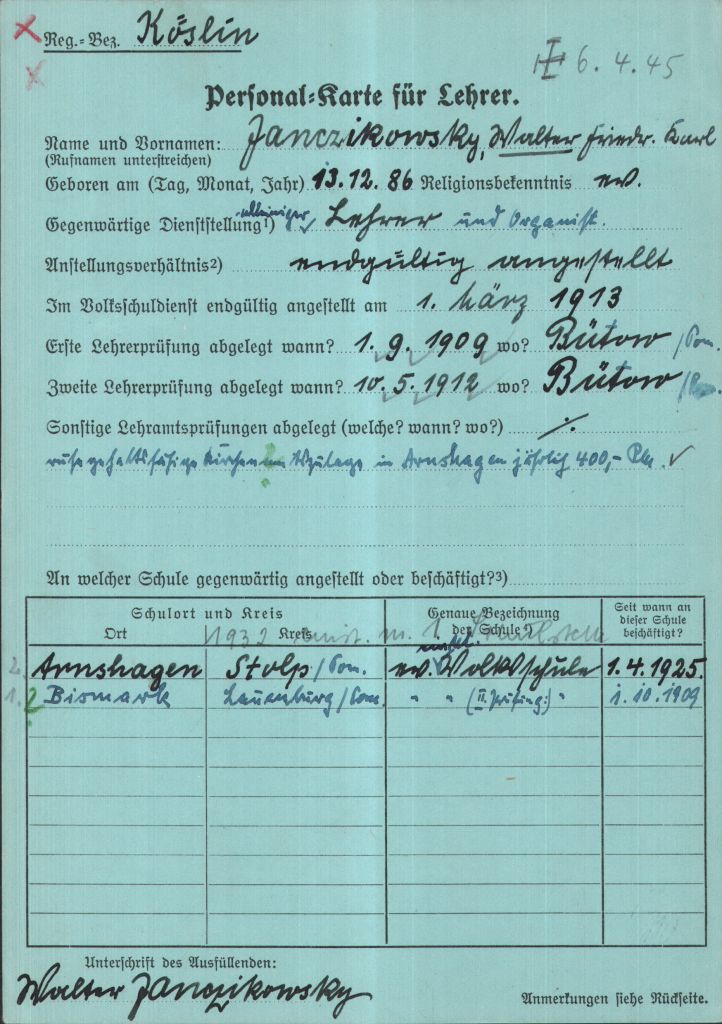 Reg.-Bez. Köslin
6. 4. 45
Personal-Karte für Lehrer.
Name und Vornamen: Janczikowsky, Walter Friedr. Karl
(Rufnamen unterstreichen)
Geboren am (Tag, Monat, Jahr) 13.12.86 Religionsbekenntnis ev.
Gegenwärtige Dienststellung¹) alleiniger Lehrer und Organist.
Anstellungsverhältnis²) endgültig angestellt
Im Volksschuldienst endgültig angestellt am 1. März 1913
Erste Lehrerprüfung abgelegt wann? 1.9.1909 wo? Bütow /Pom.
Zweite Lehrerprüfung abgelegt wann? 10.5.1912 wo? Bütow /Pom.
Sonstige Lehramtsprüfungen abgelegt (welche? wann? wo?) ./.
ruhegehaltsfähige Kirchen in Arnshagen jährlich 400,- RM.
An welcher Schule gegenwärtig angestellt oder beschäftigt?³)
Schulort und Kreis Genaue Bezeichnung der Schule⁴) Seit wann an dieser Schule beschäftigt?
Ort Kreis
1932 m. 1
2. Arnshagen Stolp/Pom. ev. Volksschule 1.4.1925.
1. 2 Bismark Lauenburg/Pom. " " (II. Prüfung.) " 1.10.1909
Unterschrift des Ausfüllenden:
Walter Janczikowsky
Anmerkungen siehe Rückseite.